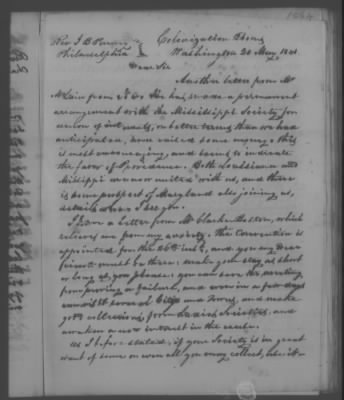 Rev J B Pinney
Philadelphia
Colonization Rooms
Washington 20 May 1841
Dear Sir
Another letter from Mr
McLain from N O. He has made a permanent
arrangement with the Mississippi Society for
union of interests, on better terms than we had
anticipated, have raised some money, this
is most encouraging and seems to indicate
the favor of Providence. Both Louisiana and
Mississippi are now united with us, and there
is some prospect of Maryland also joining us,
details when I see you.
I have a letter from Mr Clark which
relieves me from my anxiety. The Convention is
appointed for the 26th inst, and you my Dear
friend must be there: make your stay as short
or long as you please: you can save the meeting
from proving a failure, and even in a few days
visit several Cities and Towns, and make
collections, from Societies, and
awaken a new interest in the cause.
As I before stated, if your Society is in great
want of some or even all you may collect, take it